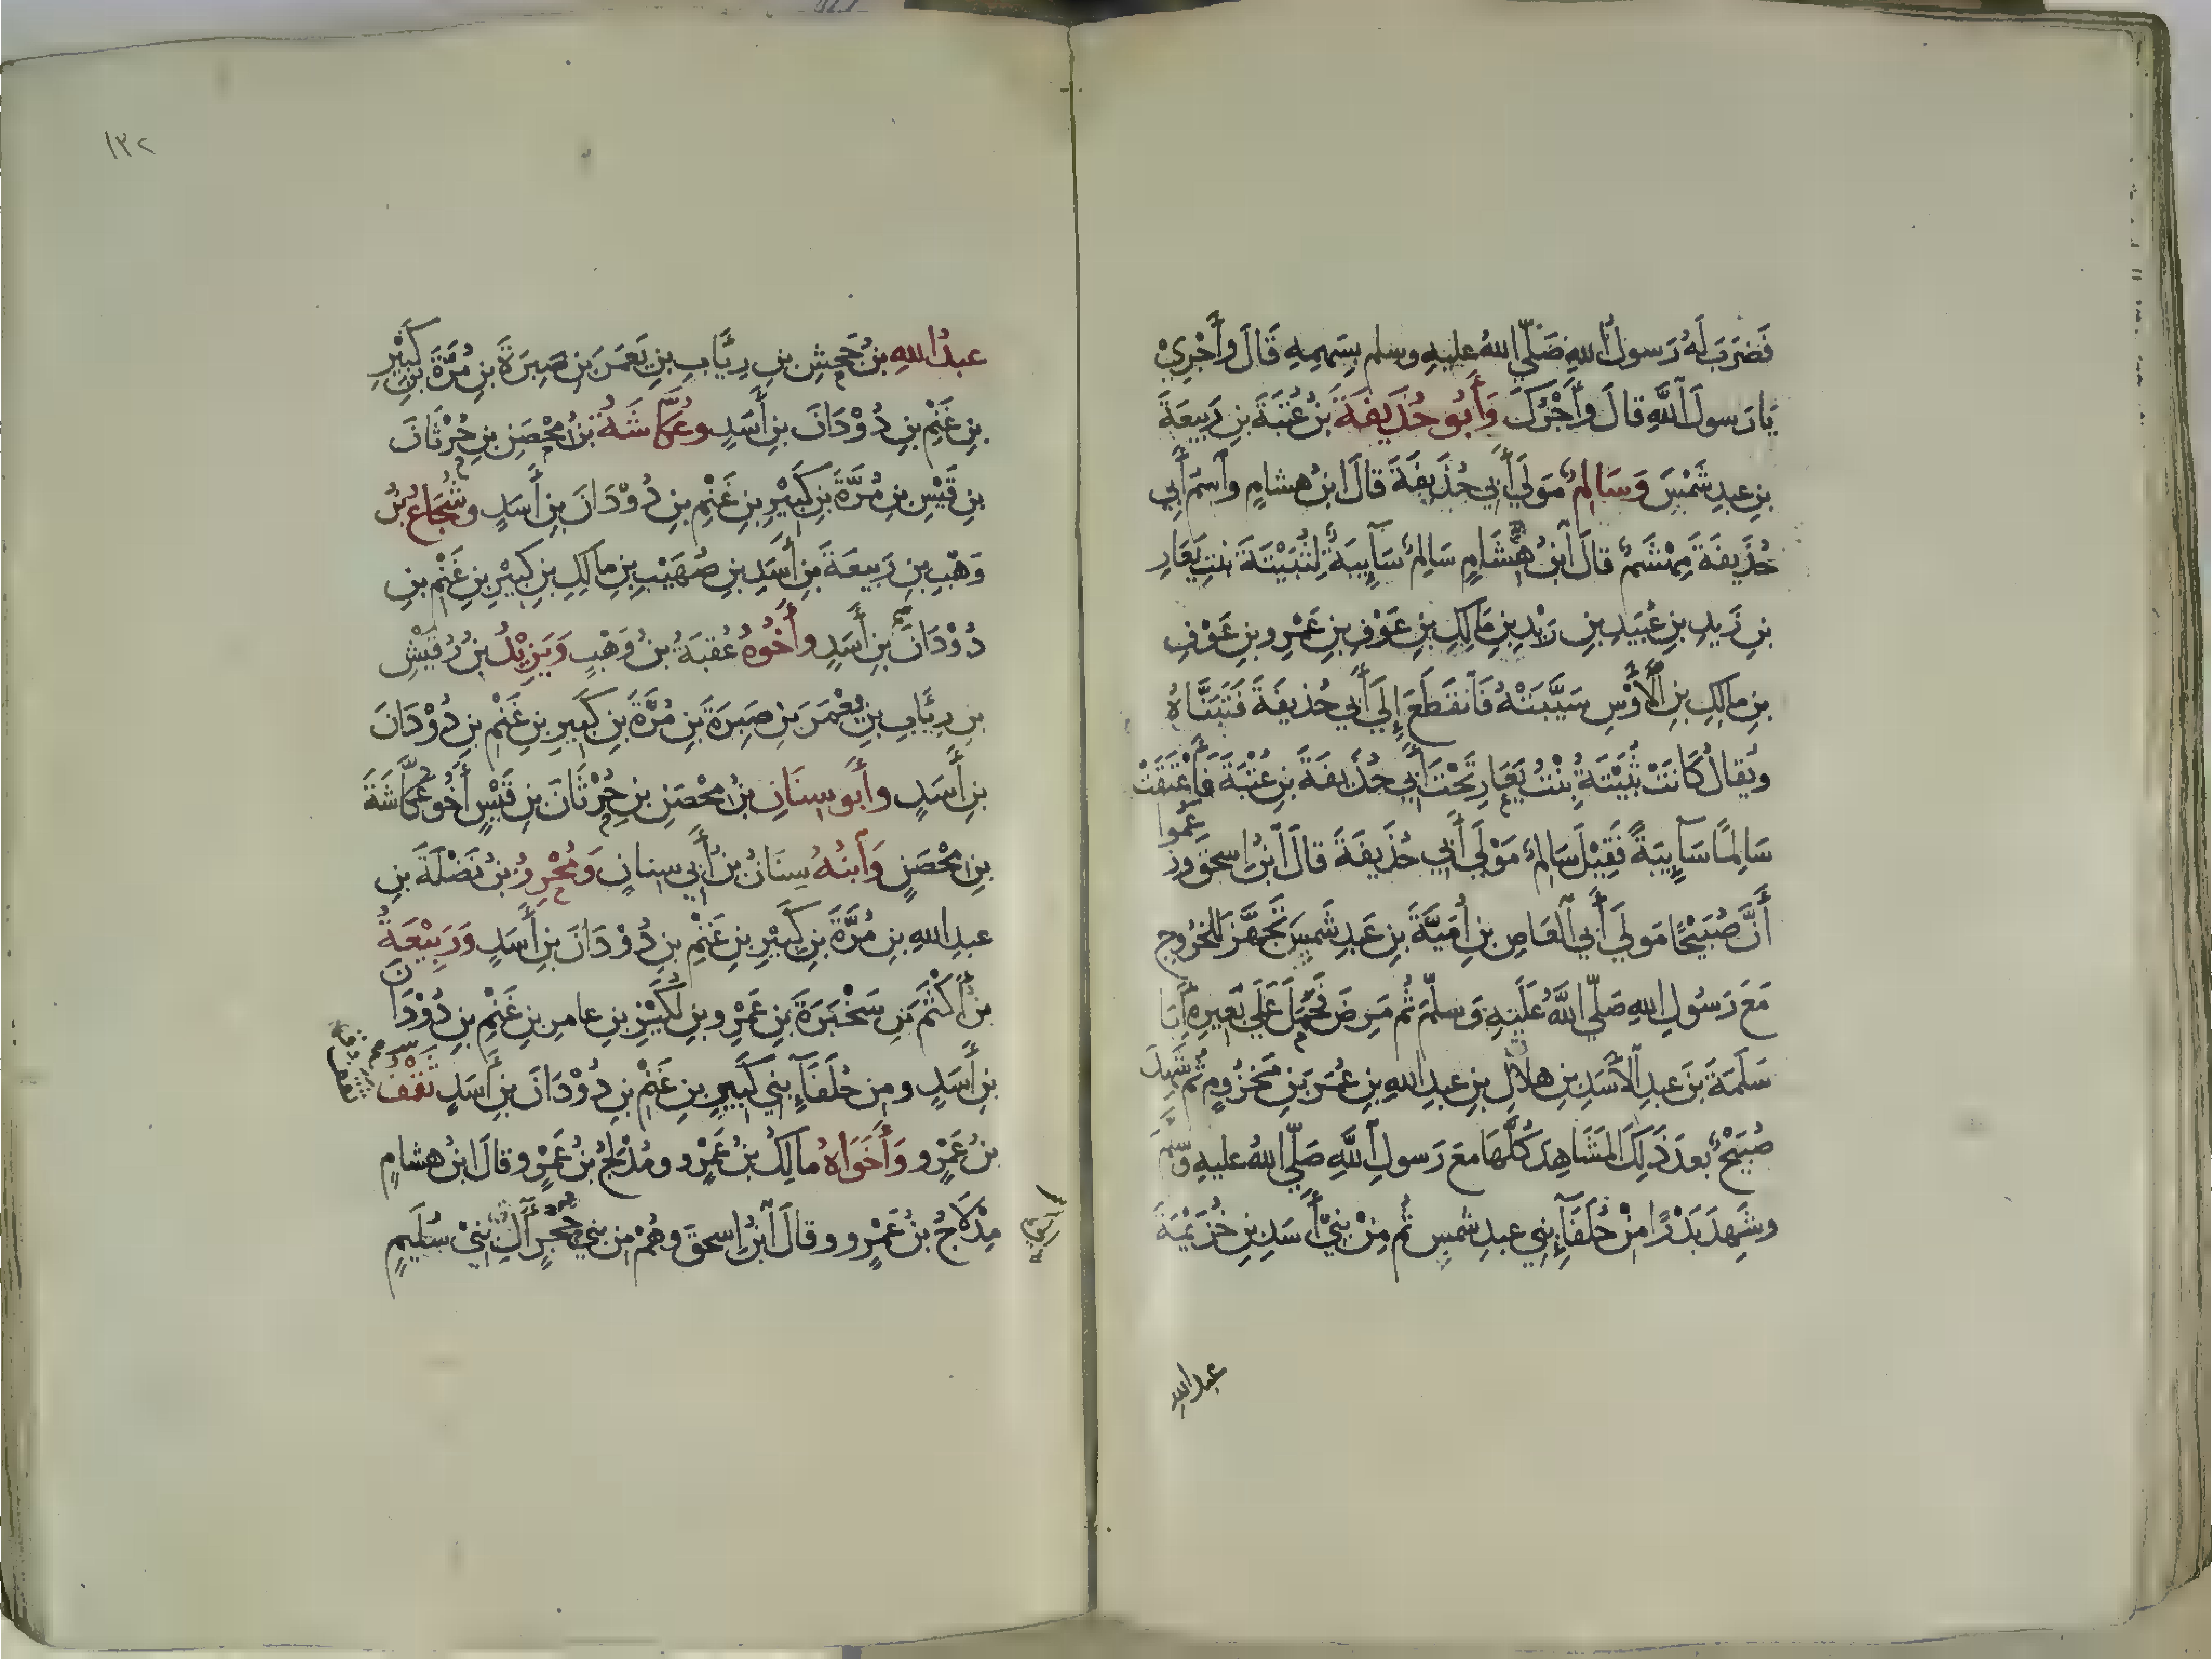 فَضَرَبَ لَهُ رَسولُ اللهِ صَلَّى اللهُ عليهِ وسلم بِسَهمِهِ قَالَ وأَجْرِيْ
يَا رَسولَ اللَّهِ قالَ وأَجْرُكَ وَأَبُو حُذَيفَةَ بنُ عُتبَةَ بنِ رَبِيعَةَ
بنِ عبدِ شَمْسَ وَسَالِمٌ مَولَى أَبي حُذَيفَةَ قالَ ابنُ هشامٍ واسمُ أَبِي
حُذَيفَةَ مِهْشَمٌ قالَ ابنُ هِشَامٍ سَالِمٌ سَآيِبَةٌ لِثُبَيْتَةَ بنتِ يَعَارِ
بنِ زَيدِ بنِ عُبَيدِ بنِ زَيْدِ بنِ مَالِكِ بنِ عَوْفِ بنِ عَمْرِو بنِ عَوْفِ
بنِ مالِكِ بنِ الأَوْسِ سَيَّبَتْهُ فَانقَطَعَ إِلَى أَبي حُذيفَةَ فَتَبَنَّاهُ
ويُقالُ كَانَتْ ثُبَيْتَةُ بِنْتُ يَعَارِ تَحْتَ أَبِي حُذَيفَةَ بنِ عُتْبَةَ فَأَعْتَقَتْ
سَالِمًا سَآيِبَةً فَقِيْلَ سَالِمٌ مَوْلَى أَبِي حُذَيفَةَ قالَ ابنُ إسحقَ وزَعَمُوا
أَنَّ صُبَيْحًا مَولَى أَبِي العَاصِ بنِ أُمَيَّةَ بنِ عَبدِ شَمسٍ تَجَهَّزَ لِلخُرُوجِ
مَعَ رَسُولِ اللهِ صَلَّى اللَّهُ عَلَيهِ وَسلَّمَ ثُم مَرِضَ فَحَمَلَ عَلَى بَعِيرِهِ أَبَا
سَلَمَةَ بنَ عبدِ الأَسَدِ بنِ هلَالِ بنِ عبدِ اللهِ بنِ عُمَرَ بنِ مَخزُومٍ ثم شَهِدَ
صُبَيْحٌ بعدَ ذَلِكَ المَشَاهِدَ كُلَّهَا معَ رَسولِ اللَّهِ صَلَّى اللهُ عليهِ وسلَّمَ
وشَهِدَ بَدْرًا مِنْ حُلَفَآءِ بَنِي عبدِ شمسٍ ثُم مِنْ بَنِيْ أَسَدِ بنِ خُزَيْمَةَ
عبد الله
١٣٢
عبدُ اللهِ بنُ جَحشِ بنِ رِيَابِ بنِ يَعمَرَ بنِ صَبِرَةَ بنِ مُرَّةَ بنِ كَبيْرِ
بنِ غَنْمِ بنِ دُوْدَانَ بنِ أَسَدٍ وعُكَّاشَةُ بنُ مِحْصَنِ بنِ حُرْثَانَ
بنِ قَيْسِ بنِ مُرَّةَ بنِ كَبِيْرِ بنِ غَنْمِ بنِ دُوْدَانَ بنِ أَسَدٍ وشُجَاعُ بنُ
وَهْبِ بنِ رَبِيعَةَ بنِ أَسَدِ بنِ صُهَيْبِ بنِ مالِكِ بنِ كَبِيْرِ بنِ غَنْمِ بنِ
دُوْدَانَ بنِ أَسَدٍ وأَخُوهُ عُقبَةُ بنُ وَهْبٍ وَيَزِيْدُ بنُ رُقَيْشِ
بنِ رِيَابِ بنِ يَعْمَرَ بنِ صَبِرَةَ بنِ مُرَّةَ بنِ كَبِيرِ بنِ غَنْمِ بنِ دُوْدَانَ
بنِ أَسَدٍ وأَبو سِنَانِ بنُ مِحْصَنِ بنِ حُرْثَانَ بنِ قَيْسٍ أَخُو عُكَّاشَةَ
بنِ مِحْصَنٍ وَابنُهُ سِنَانُ بنُ أَبِي سِنانٍ وَمُحْرِزُ بنُ نَضْلَةَ بنِ
عبدِ اللهِ بنِ مُرَّةَ بنِ كَبِيْرِ بنِ غَنْمِ بنِ دُوْدَانَ بنِ أَسَدٍ وَرَبِيْعَةُ
بنُ أَكْثَمَ بنِ سَخْبَرَةَ بنِ عَمْرِو بنِ لُكَيْزِ بنِ عامرِ بنِ غَنْمِ بنِ دُوْدَانَ
بنِ أَسَدٍ ومِن حُلَفَآءِ بَنِي كَبِيرِ بنِ غَنْمِ بنِ دُوْدَانَ بنِ أَسَدٍ ثَقْفُ
بنُ عَمْرٍو وَأَخَوَاهُ مالِكُ بنُ عَمْرٍو ومُدْلِجُ بنُ عَمْرٍو قالَ ابنُ هشامٍ
مِدْلَاجُ بنُ عَمْرٍو وقالَ ابنُ إسحقَ وهُمْ مِن بَنِي حَجْرٍ آلُ بَنِيْ سُلَيمٍ